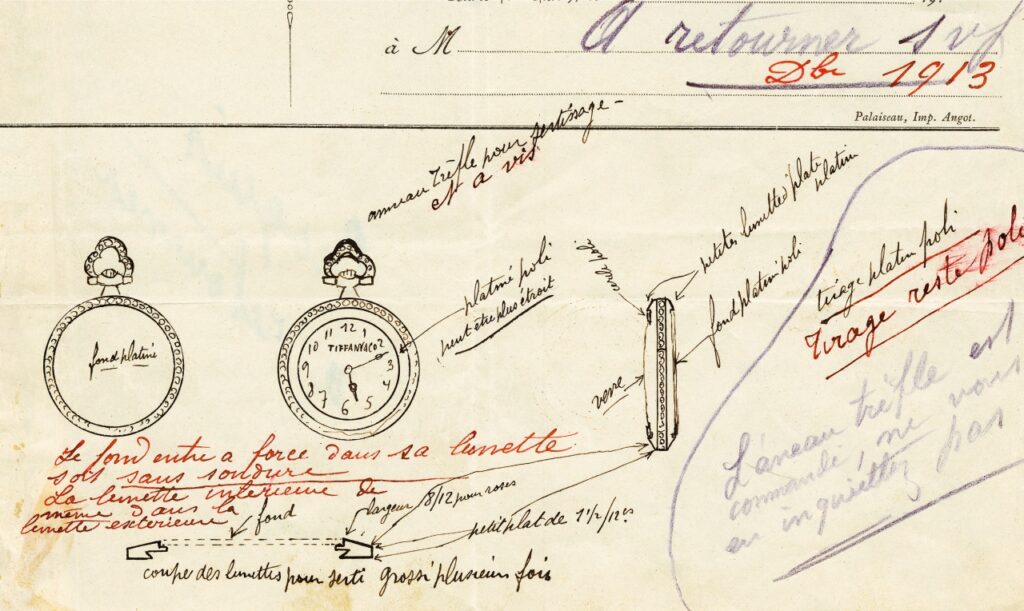 à M A retourner svp
Dbr 1913
Palaiseau, Imp. Angot.
anneau trèfle pour sertissage -
et a vis
platiné poli
peut être plus étroit
poli
petites lunettes plate
platin
fond platin poli
verre
tirage platin poli
tirage reste poli
fond platiné
12 1 2 3 4 5 6 7 8 9 10 11
TIFFANY & CO
Le fond entre a force dans sa lunette
sois sans soudure
La lunette interieure de
même dans la
lunette exterieure
fond
largeur 8/12 pour roses
petit plat de 1 1/2/12es
coupe des lunettes pour serti grossi plusieurs fois
L'aneau trèfle est
commandé, ne vous
en inquiettez pas